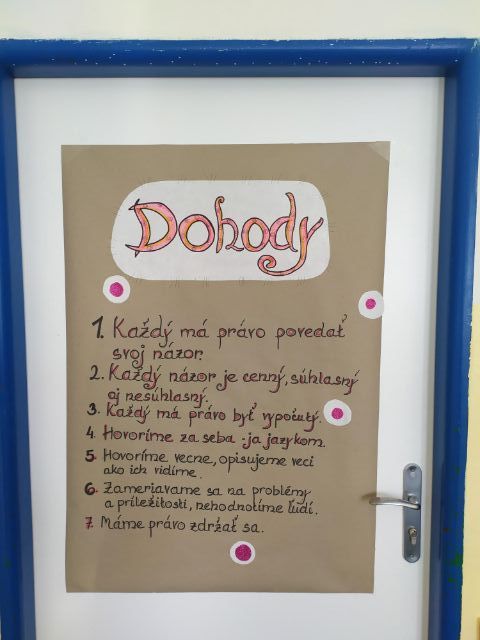 Dohody
1. Každý má právo povedať
svoj názor.
2. Každý názor je cenný, súhlasný
aj nesúhlasný.
3. Každý má právo byť vypočutý.
4. Hovoríme za seba - ja jazykom.
5. Hovoríme vecne, opisujeme veci
ako ich vidíme.
6. Zameriavame sa na problémy
a príležitosti, nehodnotíme ľudí.
7. Máme právo zdržať sa.